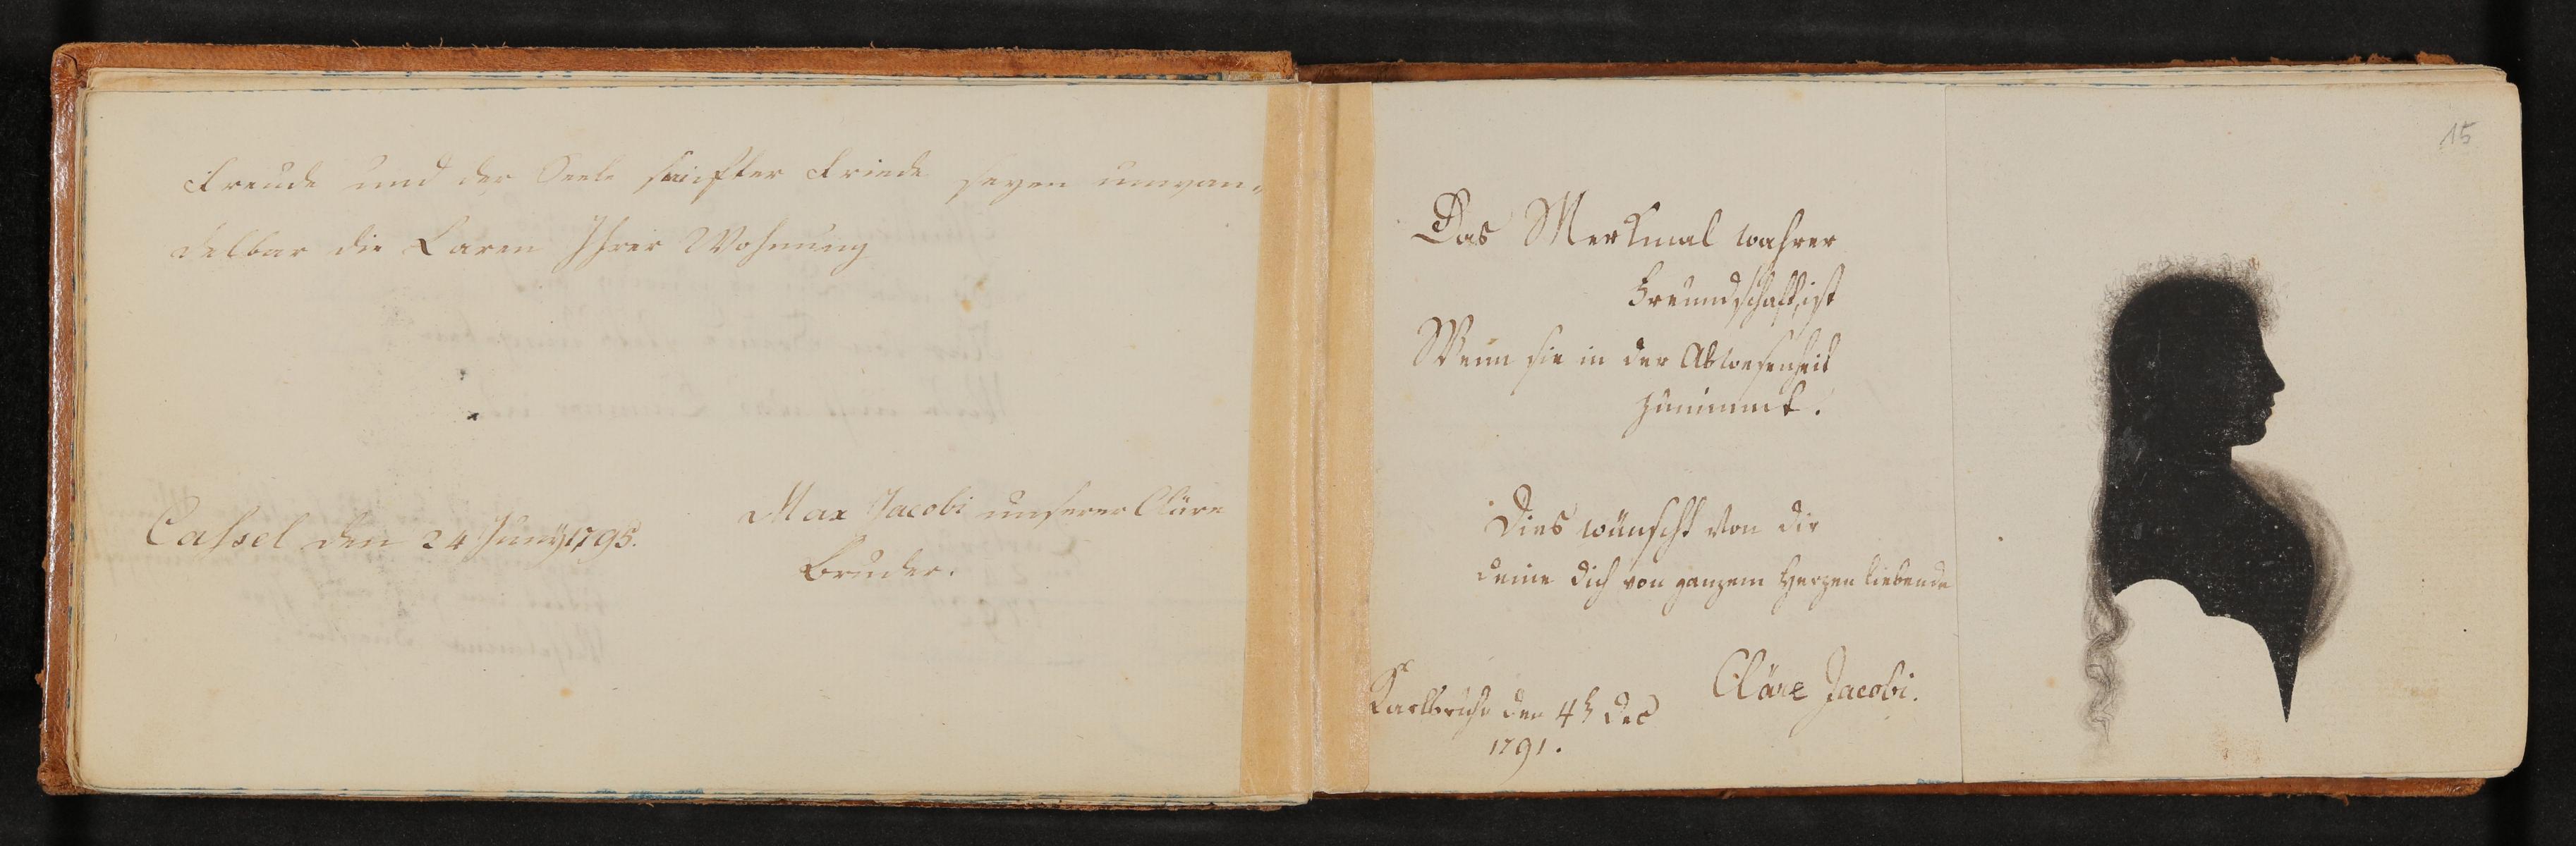 Freude und der Seele sanfter Friede seyen unwan„
delbar die Laren Ihrer Wohnung
Cassel den 24 Juny 1795.
Max Jacobi unserer Cläre
Bruder.
15
Das Merkmal wahrer
Freundschaft, ist
Wenn sie in der Abwesenheit
zunimmt.
Dies wünscht von dir
deine dich von ganzem Herzen liebende
Cläre Jacobi.
Karlsruhe den 4t Dec
1791.